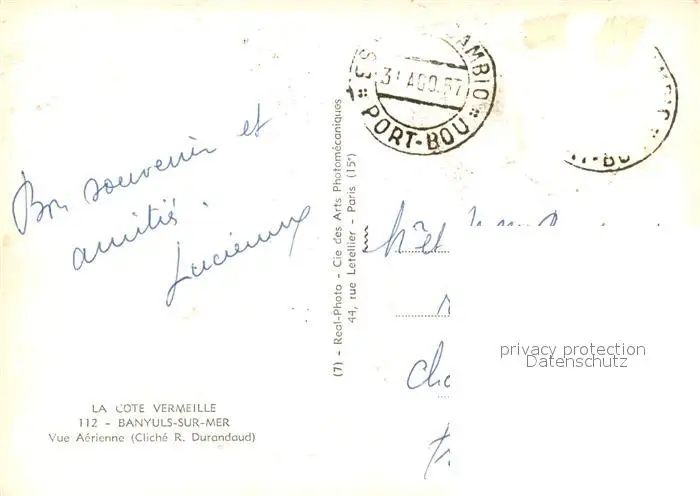 Bon souvenir et
amitiés.
Lucienne
LA COTE VERMEILLE
112 - BANYULS-SUR-MER
Vue Aérienne (Cliché R. Durandaud)
(7) - Real-Photo - Cie des Arts Photomécaniques
44, rue Letellier - Paris (15e)
CAMBIO
31 AGO.57
PORT-BOU
T-BOU
M et
privacy protection
Datenschutz